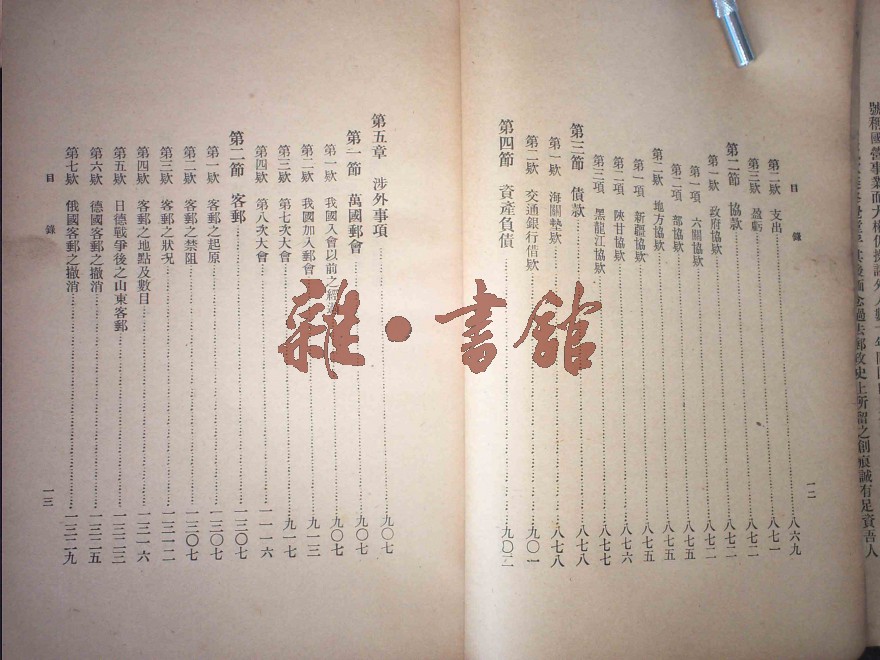 號稱國營事業而大權仍操諸外人
過去郵政史上所留之創痕誠有足資吾人
目 錄
一二
第二欵 支出 八六九
第三欵 盈虧 八七一
第二節 協款 八七二
第一欵 政府協欵 八七二
第一項 六關協欵 八七二
第二項 部協欵 八七五
第二欵 地方協欵 八七五
第一項 新疆協欵 八七五
第二項 陝甘協欵 八七六
第三項 黑龍江協欵 八七七
第三節 債款 八七八
第一欵 海關墊欵 八七八
第二欵 交通銀行借欵 九〇一
第四節 資產負債 九〇二
第五章 涉外事項 九〇七
第一節 萬國郵會 九〇七
第一欵 我國入會以前之經過 九〇七
第二欵 我國加入郵會 九一三
第三欵 第七次大會 九一七
第四欵 第八次大會 一一一六
第二節 客郵 一三〇七
第一欵 客郵之起原 一三〇七
第二欵 客郵之禁阻 一三〇七
第三欵 客郵之狀況 一三一二
第四欵 客郵之地點及數目 一三一六
第五欵 日德戰爭後之山東客郵 一三二三
第六欵 德國客郵之撤消 一三二五
第七欵 俄國客郵之撤消 一三二九
目 錄
一三
雜·書館